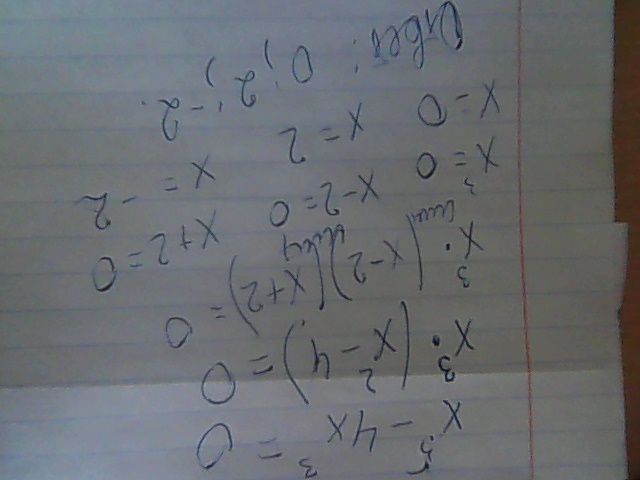 x⁵ - 4x³ = 0
x³ · (x² - 4) = 0
x³ · (x - 2)(x + 2) = 0
или или
x³ = 0 x - 2 = 0 x + 2 = 0
x = 0 x = 2 x = -2
Ответ: 0; 2; -2.